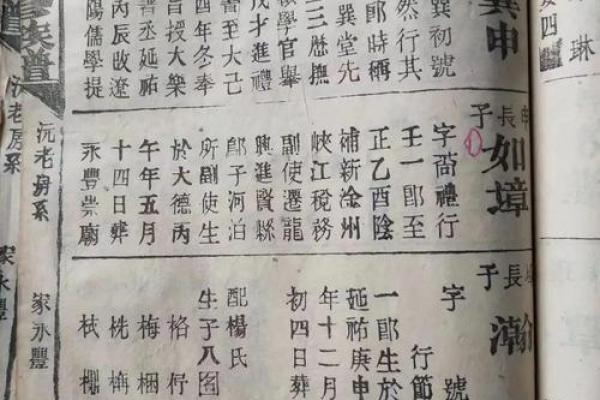 四
琳
巽申
巽初號
然行其
郎時稱
巽堂先
三歷撫
學官舉
茂才進禮
至大己
四年冬奉
旨授大樂
丞延祐
丙辰改遼
陽儒學提
申長子
如璋
字啻禮行
壬一郎至
正乙酉陰
補新淦州
峽江稅務
副使遷龍
興進賢縣
鄔子河泊
所副使生
於大德丙
午年五月
十四日葬
永豐崇廟
長子
瀚
字 號
行節
一郎生於
延祐庚申
年十二月
初四日葬
配楊氏
生子八
格
梅 梱
桄
栻
族譜
沅老房系
家永豐
老房系
永豐